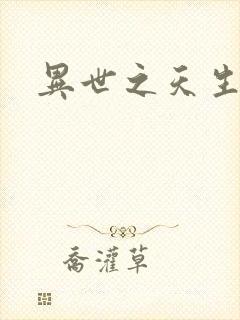 異世之天生
喬灌草